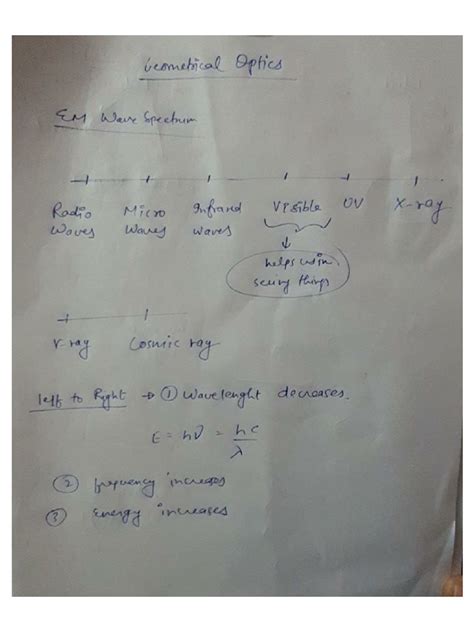 Geometrical Optics
EM Wave Spectrum
Radio Micro Infrared Visible UV X-ray
Waves Waves waves
helps us in
seeing things
γ-ray Cosmic ray
left to Right → ① Wavelenght decreases.
E = hν = hc/λ
② frequency increases
③ Energy increases